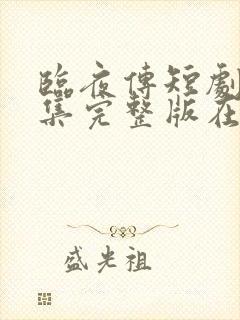 臨夜傅短劇
集完整版在
盛光祖